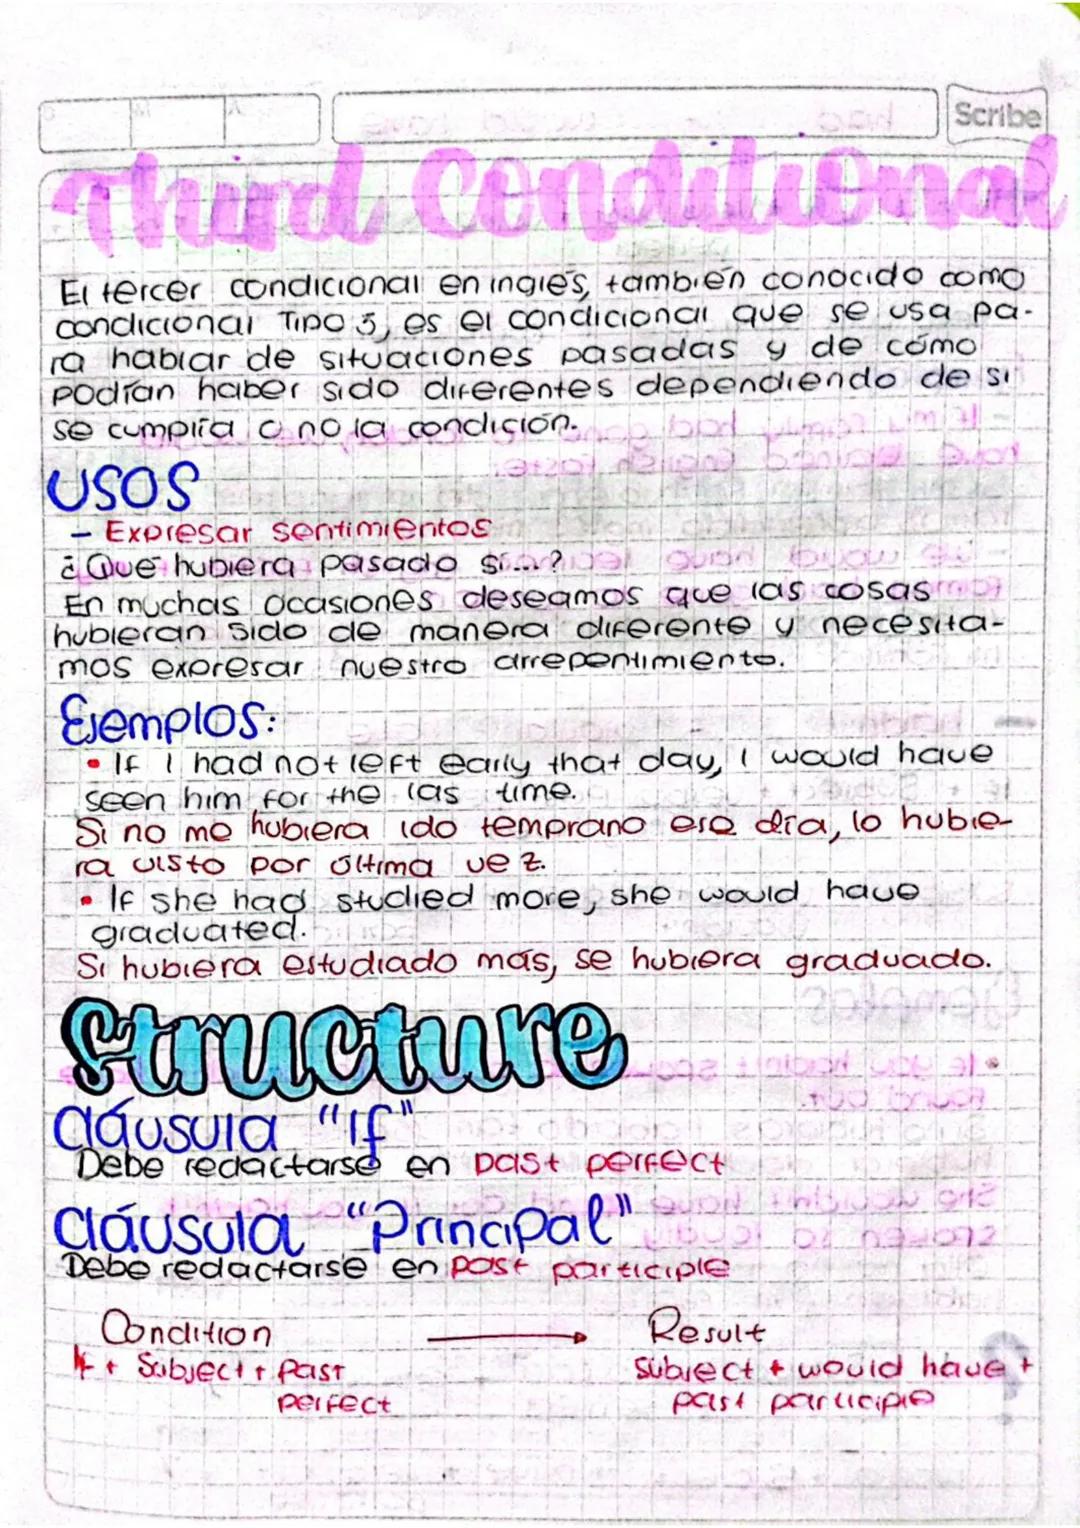 Scribe
Third Conditional
El tercer condicional en inglés, también conocido como
condicional Tipo 3, es el condicional que se usa pa-
ra hablar de situaciones pasadas y de cómo
podrían haber sido diferentes dependiendo de si
se cumplía o no la condición.
USOS
- Expresar sentimientos
¿Que hubiera pasado si...?
En muchas ocasiones deseamos que las cosas
hubieran sido de manera diferente y necesita-
mos expresar nuestro arrepentimiento.
Ejemplos:
• If I had not left early that day, I would have
seen him for the las time.
Si no me hubiera ido temprano ese día, lo hubie-
ra visto por última vez.
• If she had studied more, she would have
graduated.
Si hubiera estudiado más, se hubiera graduado.
Structure
Cláusula "If"
Debe redactarse en past perfect
Cláusula "Principal"
Debe redactarse en past participle
Condition → Result
If + Subject + past
perfect
subject + would have +
past participle